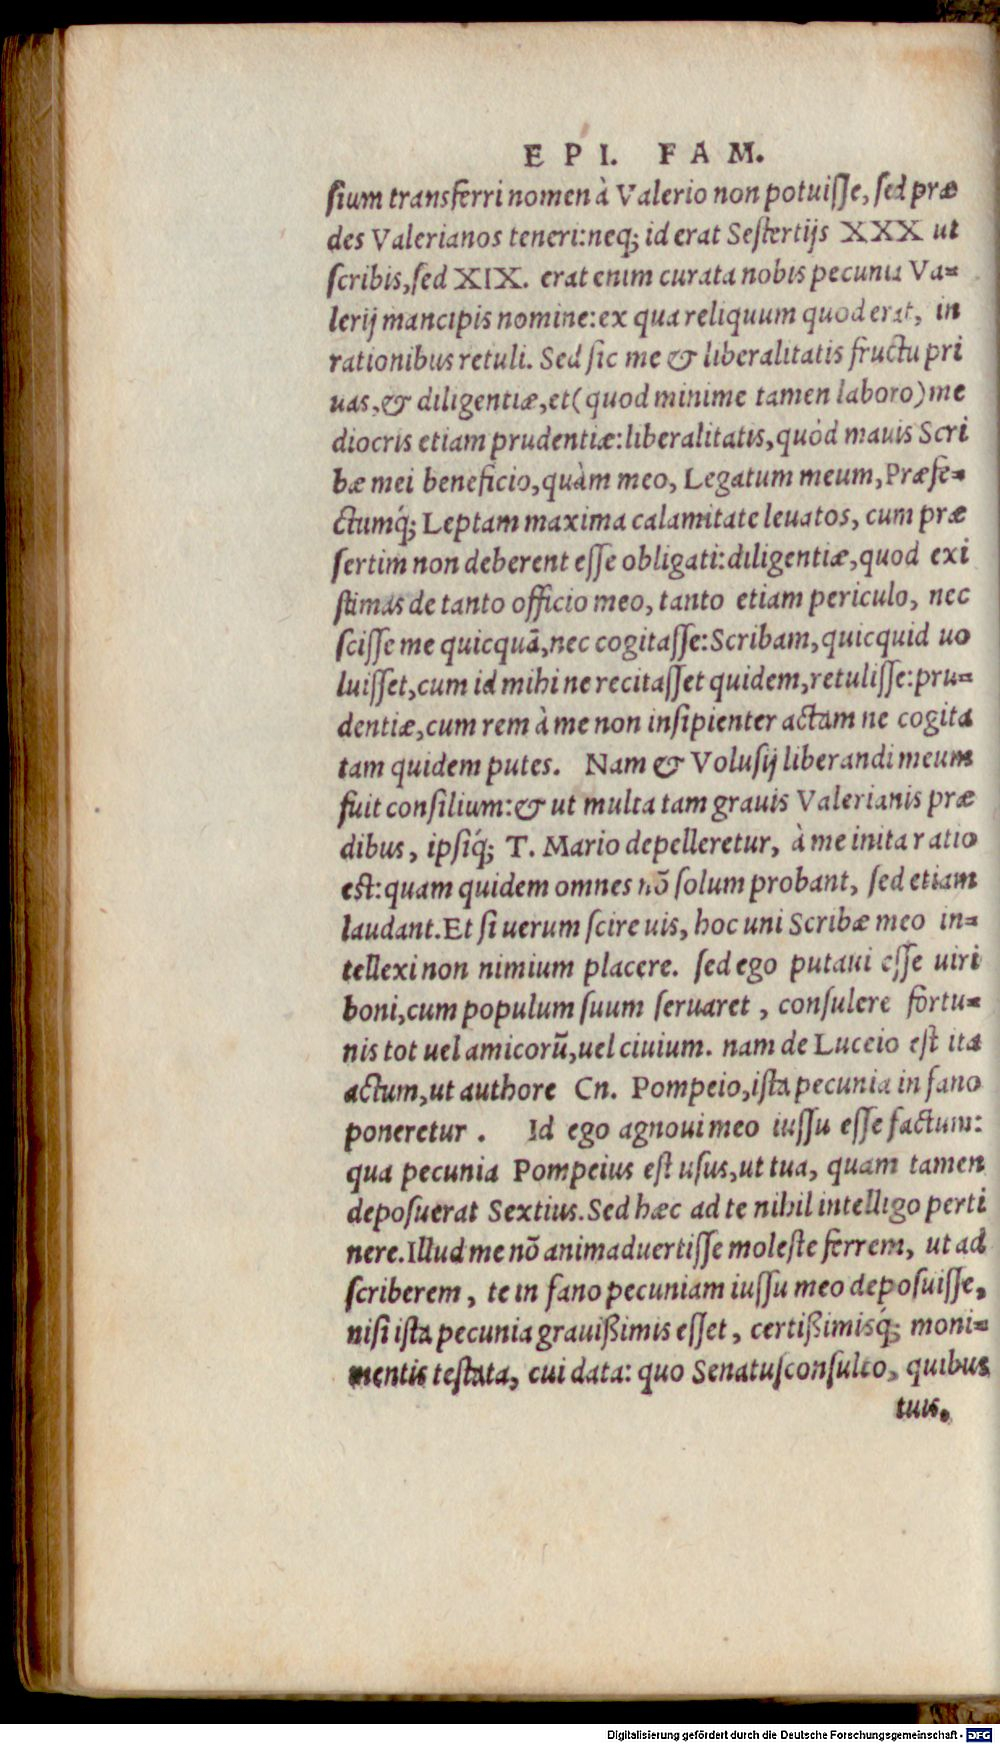 EPI. FAM.
ſium transferri nomen à Valerio non potuiſſe, ſed præ
des Valerianos teneri: neq; id erat Seſtertijs XXX ut
ſcribis, ſed XIX. erat enim curata nobis pecunia Va=
lerij mancipis nomine: ex qua reliquum quod erat, in
rationibus retuli. Sed ſic me & liberalitatis fructu pri
uas, & diligentiæ, et (quod minime tamen laboro) me
diocris etiam prudentiæ: liberalitatis, quòd mauis Scri
bæ mei beneficio, quàm meo, Legatum meum, Præfe=
ctumq́; Leptam maxima calamitate leuatos, cum præ
ſertim non deberent eſſe obligati: diligentiæ, quod exi
ſtimas de tanto officio meo, tanto etiam periculo, nec
ſciſſe me quicquā, nec cogitaſſe: Scribam, quicquid uo
luiſſet, cum id mihi ne recitaſſet quidem, retuliſſe: pru=
dentiæ, cum rem à me non inſipienter actam ne cogita
tam quidem putes. Nam & Voluſij liberandi meum
fuit conſilium: & ut multa tam grauis Valerianis præ
dibus, ipſiq́; T. Mario depelleretur, à me inita ratio
est: quam quidem omnes nō ſolum probant, ſed etiam
laudant. Et ſi uerum ſcire uis, hoc uni Scribæ meo in=
tellexi non nimium placere. ſed ego putaui eſſe uiri
boni, cum populum ſuum ſeruaret, conſulere fortu=
nis tot uel amicorū, uel ciuium. nam de Luceio eſt ita
actum, ut authore Cn. Pompeio, iſta pecunia in fano
poneretur. Id ego agnoui meo iuſſu eſſe factum:
qua pecunia Pompeius eſt uſus, ut tua, quam tamen
depoſuerat Sextius. Sed hæc ad te nihil intelligo perti
nere. Illud me nō animaduertiſſe moleſte ferrem, ut ad
ſcriberem, te in fano pecuniam iuſſu meo depoſuiſſe,
niſi iſta pecunia grauißimis eſſet, certißimisq́; moni=
mentis teſtata, cui data: quo Senatuſconſulto, quibus
tuis.
Digitalisierung gefördert durch die Deutsche Forschungsgemeinschaft - DFG